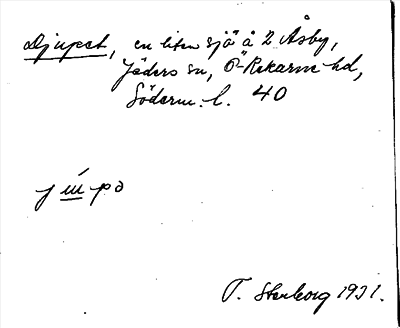 Djupet, en liten sjö å 2 Åsby,
Jäders sn, Ö-Rekarne hd,
Söderm. l. 40
T. Stenborg 1931.